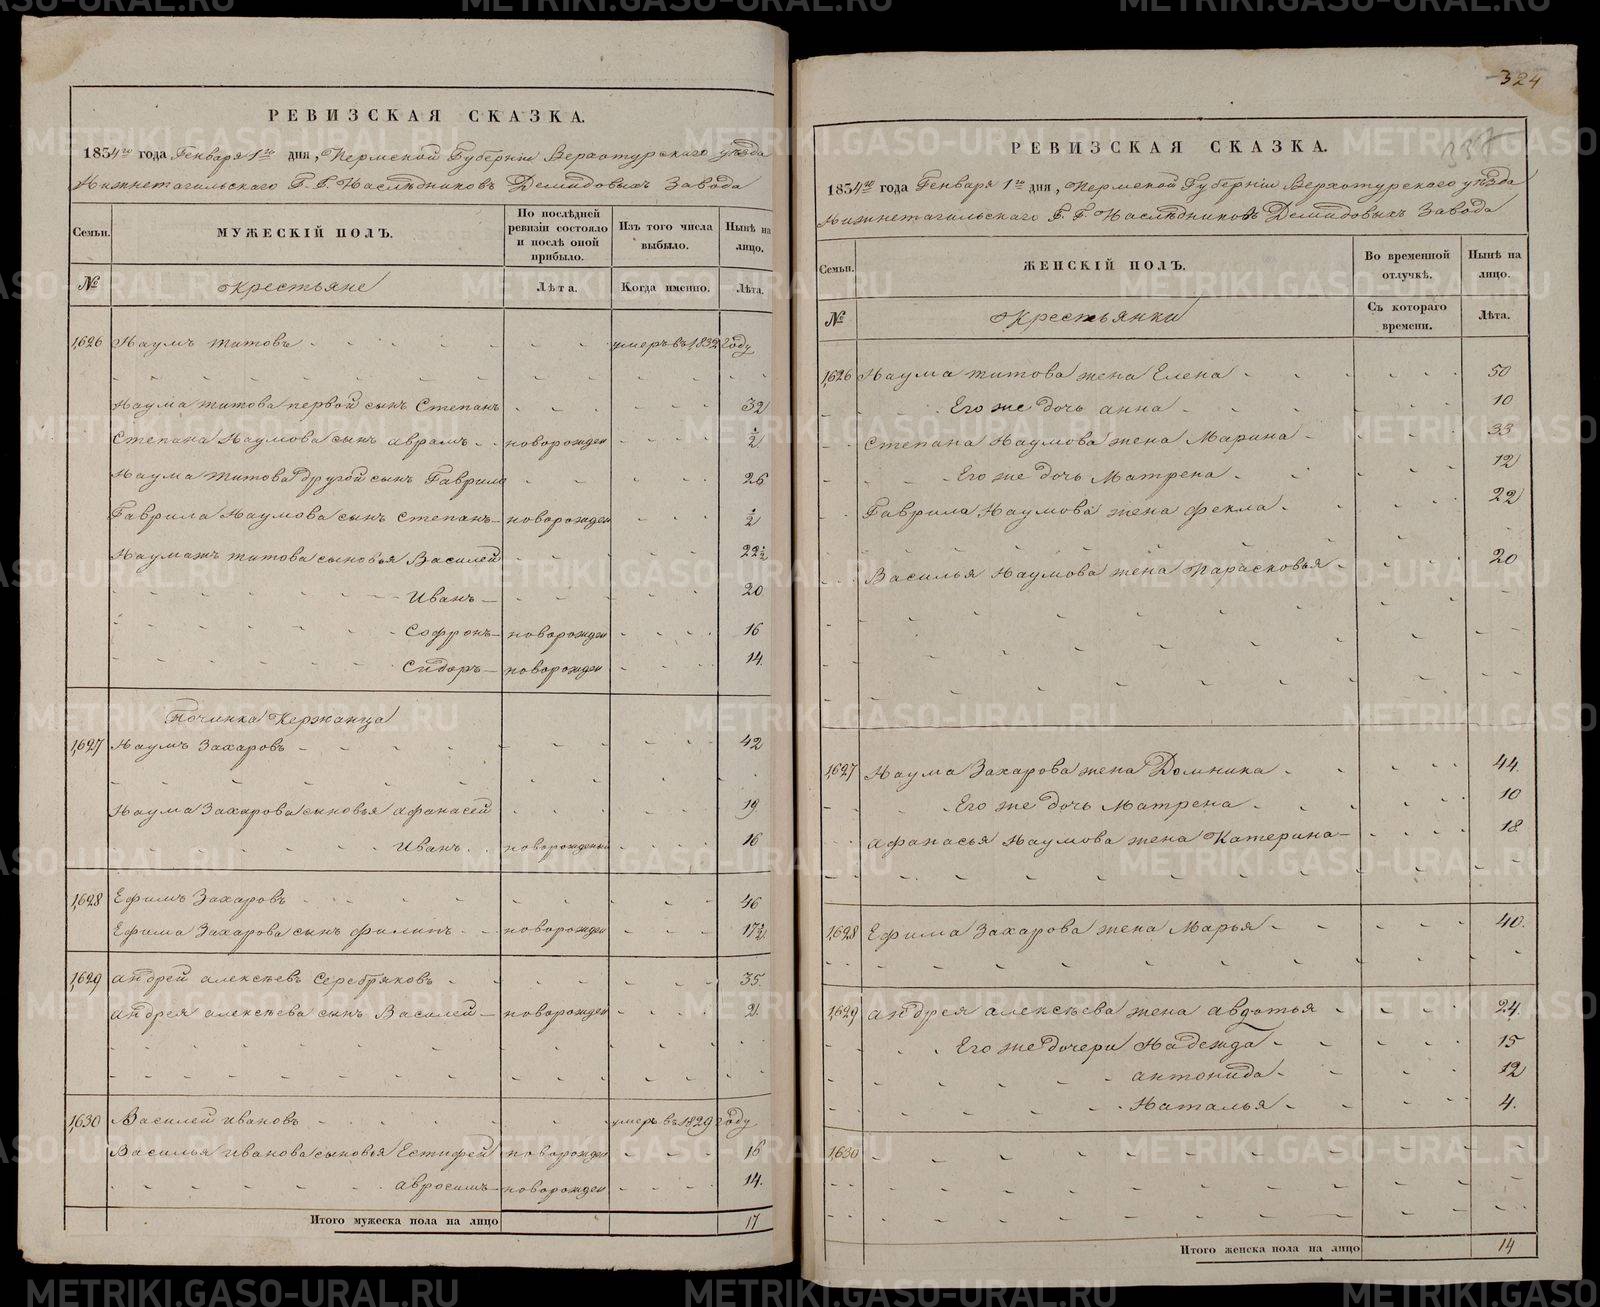 РЕВИЗСКАЯ СКАЗКА.
1834го года Генваря 1го дня, Пермской Губернiи Верхотурскаго уѣзда
Нижнетагильскаго Г. Г. Наслѣдниковъ Демидовыхъ Завода
Семьи.
МУЖЕСКIЙ ПОЛЪ.
По послѣдней ревизiи состояло и послѣ оной прибыло.
Изъ того числа выбыло.
Нынѣ на лицо.
№
крестьяне
Лѣта.
Когда именно.
Лѣта.
1,626 Наумъ Титовъ умеръ въ 1832 году
Наума Титова первой сынъ Степанъ 32
Степана Наумова сынъ Аврамъ новорожден ½
Наума Титова другой сынъ Гаврило 26
Гаврила Наумова сынъ Степанъ новорожден ½
Наумажъ Титова сыновья Василей 22½
Иванъ 20
Софронъ новорожден 16
Сидоръ новорожден 14.
Починка Кержанца
1,627 Наумъ Захаровъ 42
Наума Захарова сыновья Афанасей 19
Иванъ новорожденый 16
1,628 Ефимъ Захаровъ 46
Ефима Захарова сынъ Филипъ новорожден 17½
1,629 Андрей Алексѣевъ Серебряковъ 35.
Андрея Алексѣева сынъ Василей новорожден 2.
1,630 Василей Ивановъ умеръ въ 1829 году
Василья Иванова сыновья Естифей новорожден 16
Авросимъ новорожден 14.
Итого мужеска пола на лицо 17
324
337
РЕВИЗСКАЯ СКАЗКА.
1834го года Генваря 1го дня, Пермской Губернiи Верхотурскаго уѣзда
Нижнетагильскаго Г. Г. Наслѣдниковъ Демидовыхъ Завода
Семьи.
ЖЕНСКIЙ ПОЛЪ.
Во временной отлучкѣ.
Нынѣ на лицо.
№
Крестьянки
Съ котораго времени.
Лѣта.
1,626 Наума Титова жена Елена 50
Его же дочь Анна 10
Степана Наумова жена Марина 33
Его же дочь Матрена 12
Гаврила Наумова жена Фекла 22
Василья Наумова жена Парасковья 20
1,627 Наума Захарова жена Домника 44.
Его же дочь Матрена 10
Афанасья Наумова жена Катерина 18
1,628 Ефима Захарова жена Марья 40.
1,629 Андрея Алексѣева жена Авдотья 24.
Его же дочери Надежда 15
Антонида 12
Наталья 4.
1,630
Итого женска пола на лицо 14
METRIKI.GASO-URAL.RU